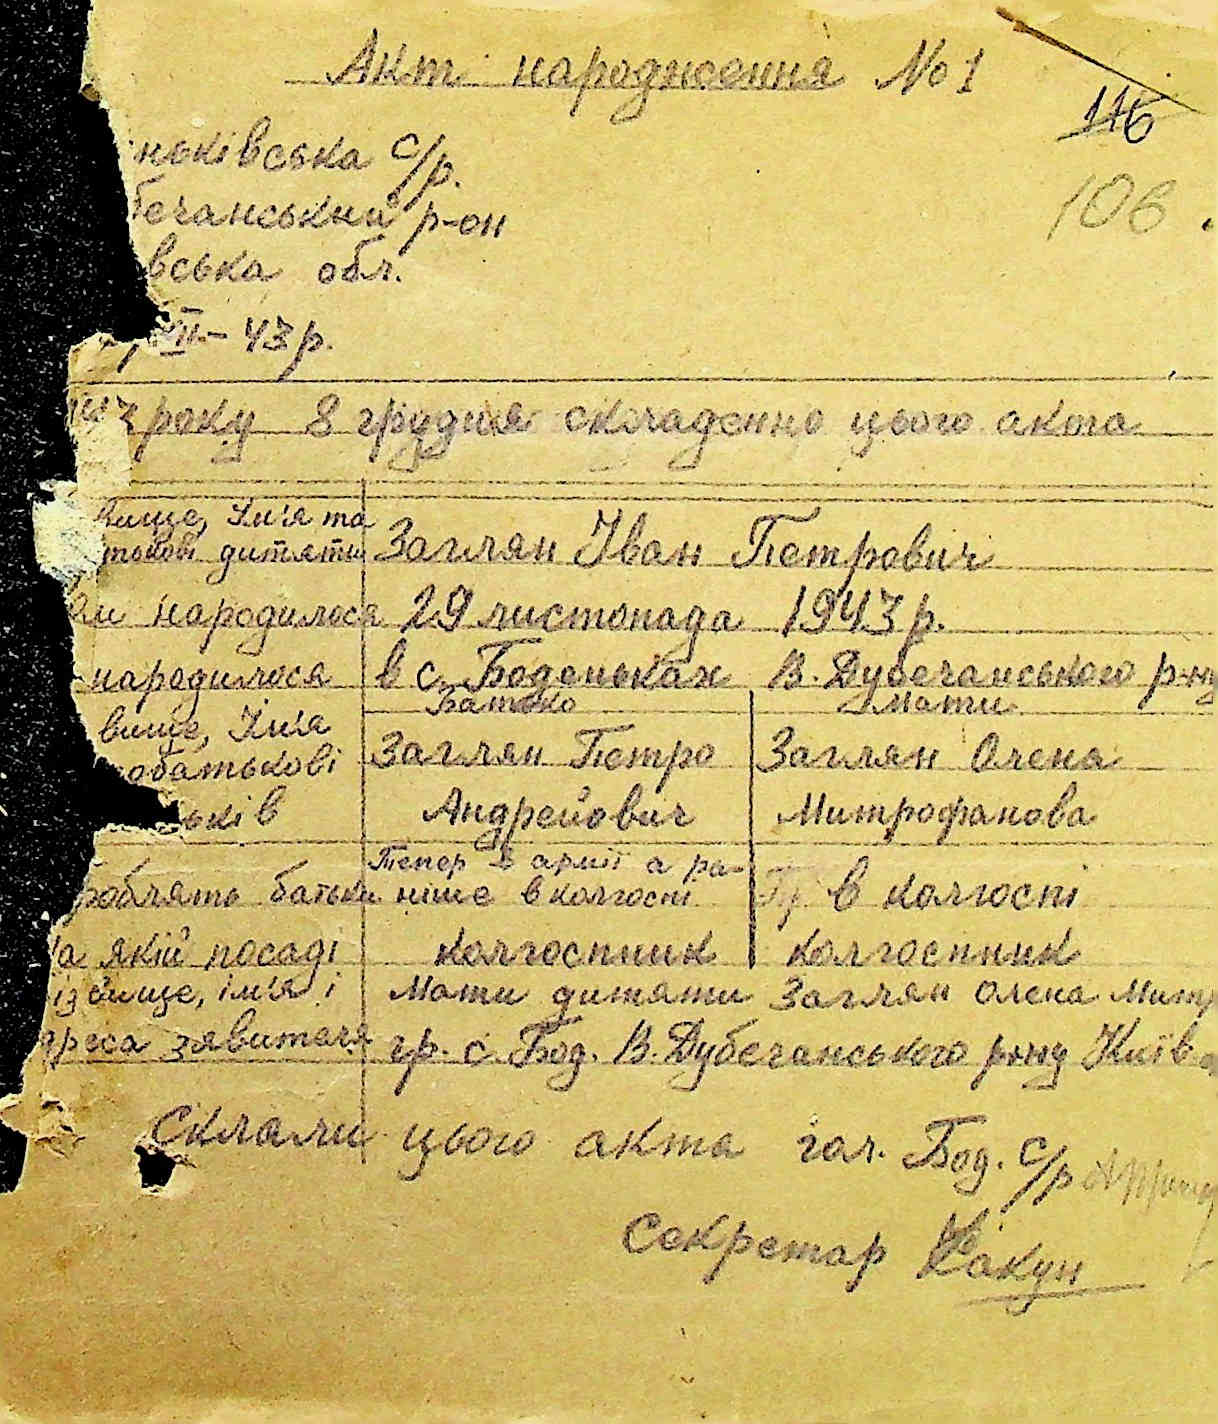 Акт народження № 1
116
106
ньківська с/р.
бечанський р-он
вська обл.
XII - 43 р.
1943 року 8 грудня складенно цього акта
вище, Ім'я та
тькові дитяти Заглян Іван Петрович
народилося 29 листопада 1943 р.
народилося в с. Боденьках В. Дубечанського р-ну
Батько Мати
вище, Ім'я
обатькові Заглян Петро Заглян Олена
ьків Андрейович Митрофанова
Тепер в армії а ра-
роблять батьки ніше в колгоспі в колгоспі
а якій посаді колгоспник колгоспник
ізвище, ім'я і Мати дитяти Заглян Олена Митр
дреса зявителя гр. с. Бод. В. Дубечанського р-ну Київ
Склали цього акта гол. Бод. с/р
Секретар Какун